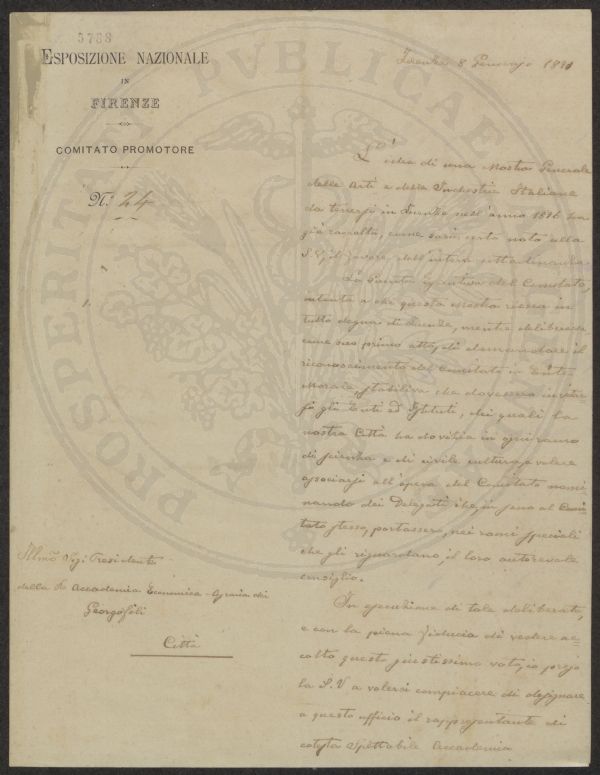 3788
ESPOSIZIONE NAZIONALE
IN
FIRENZE
COMITATO PROMOTORE
N. 24
Firenze 8 Gennajo
L'idea di una Mostra Generale
delle Arti e della Industria Italiana
da tenersi in Firenze nell'anno 1896 ha
già raccolto, come sarà certo noto alla
S. V. il favore dell'intera cittadinanza.
La Giunta Esecutiva del Comitato,
intenta a che questa mostra riesca in
tutto degna di Firenze, mentre deliberava
come suo primo atto, di domandare il
riconoscimento del Comitato in Ente
Morale, stabiliva che dovessero invitar
si gli Enti ed Istituti, dei quali la
nostra Città ha dovizia in ogni ramo
di scienza e di civile cultura, a volere
associarsi all'opera del Comitato nomi
nando dei Delegati che, in seno al Comi
tato stesso, portassero, nei rami speciali
che gli riguardano, il loro autorevole
consiglio.
In esecuzione di tale deliberato,
e con la piena fiducia di vedere ac=
colto questo giustissimo voto, io prego
la S. V a volersi compiacere di designare
a questo ufficio il rappresentante di
cotesta Spettabile Accademia
Illmo Sig. Presidente
della R. Accademia Economica-Agraria dei
Georgofili
Città
PROSPERITATI PVBLICAE